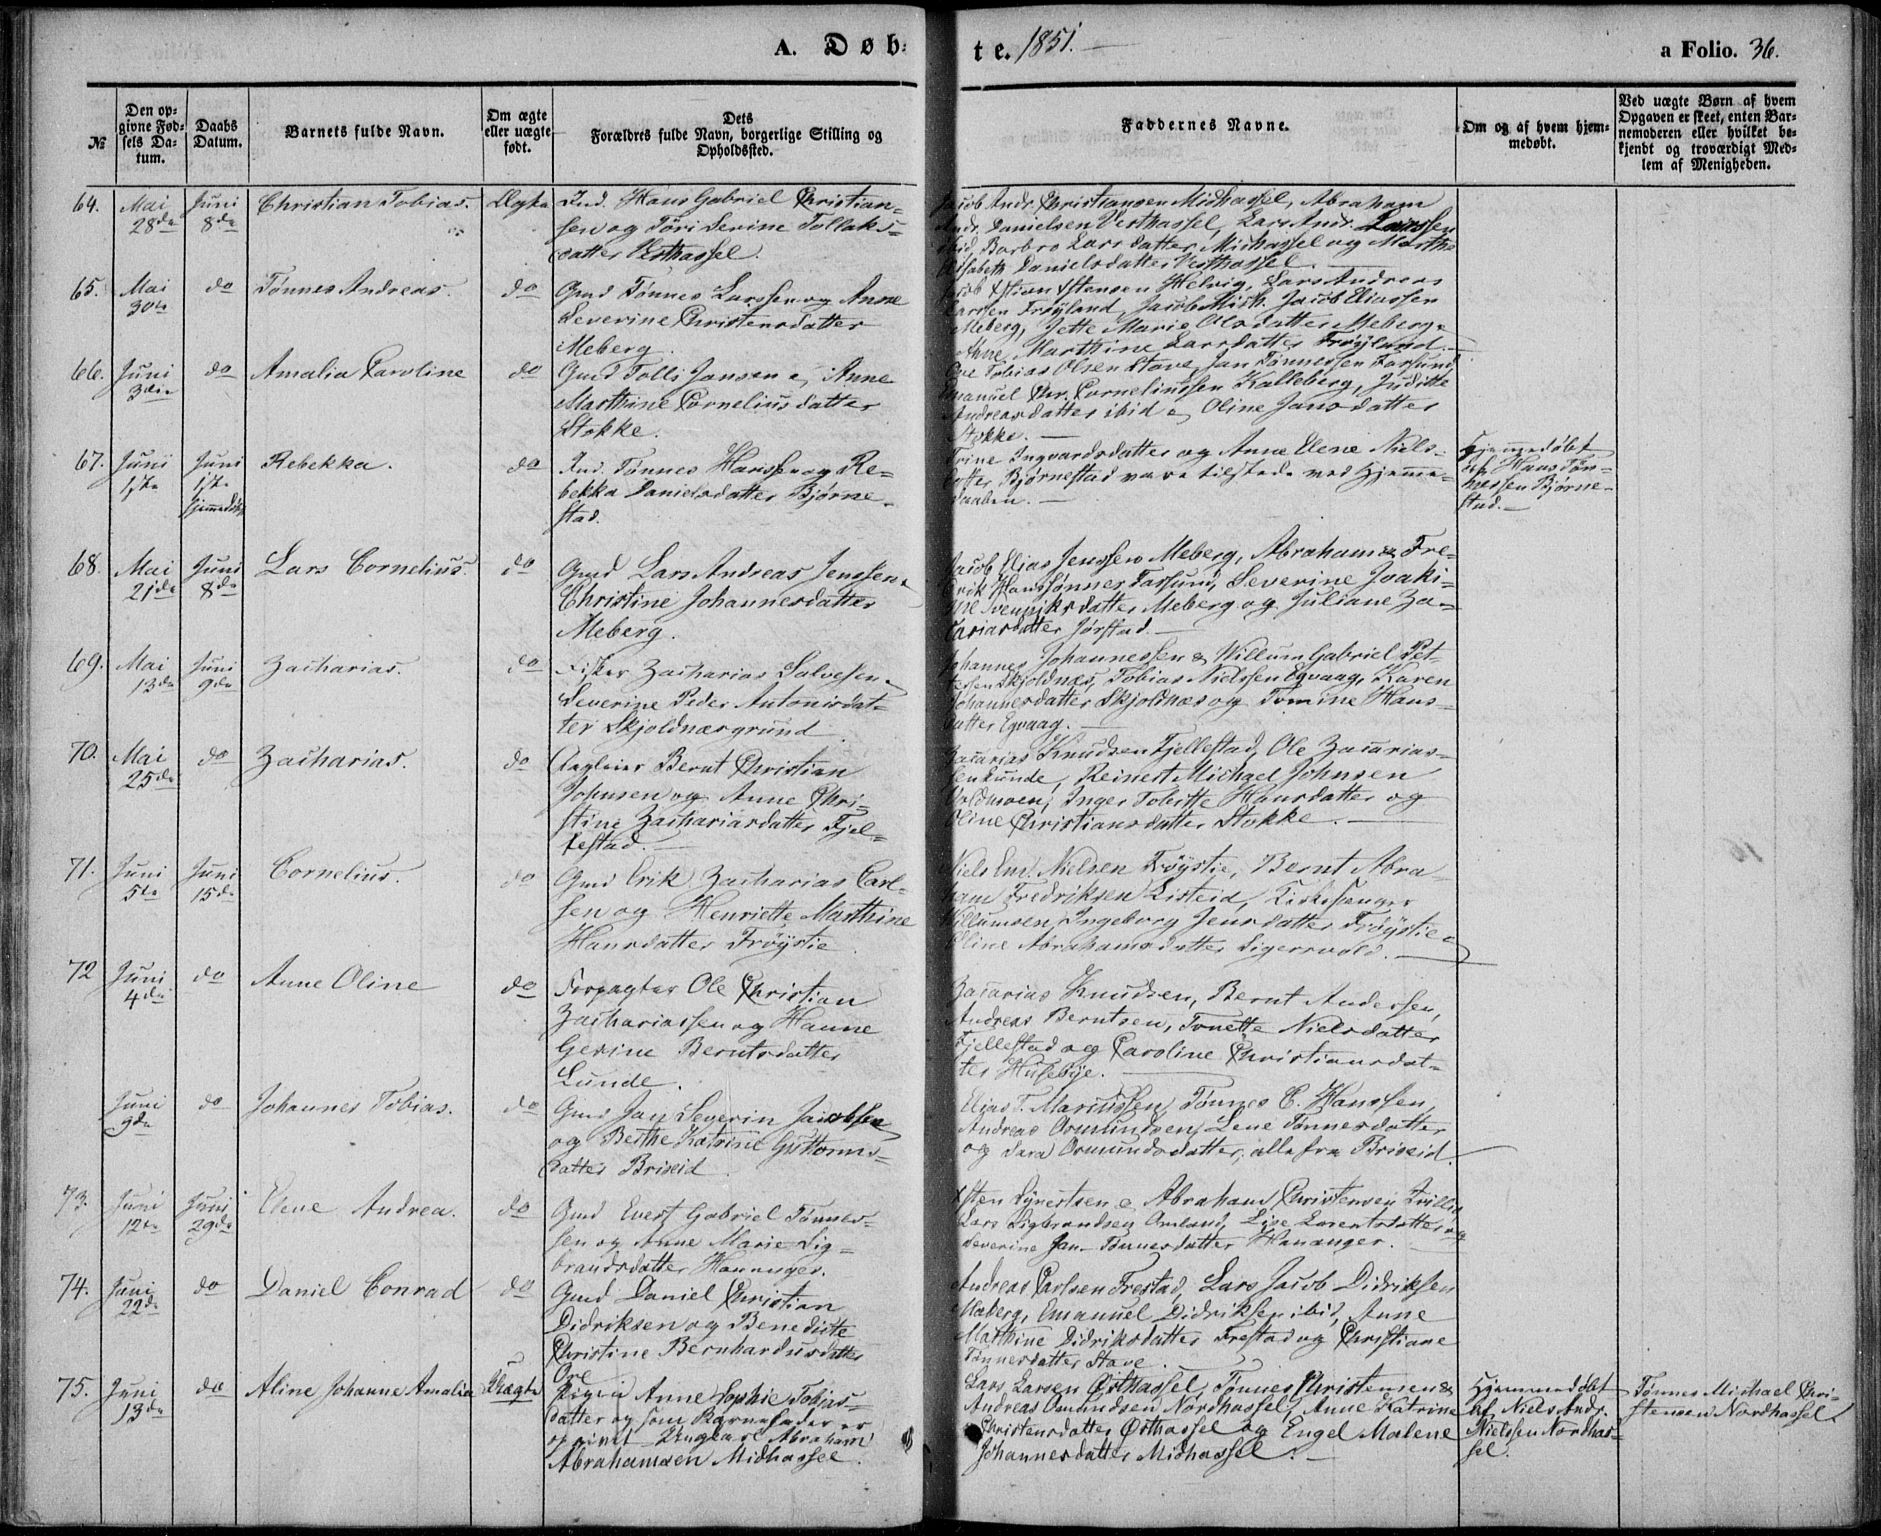 A. Døb-
te. 1851.
a Folio. 36.
№
Den op-
givne Fød-
sels Da-
tum.
Daabs
Datum.
Barnets fulde Navn.
Om ægte
eller uægte
født.
Dets
Forældres fulde Navn, borgerlige Stilling og
Opholdssted.
Faddernes Navne.
Om og af hvem hjem-
medøbt.
Ved uægte Børn af hvem
Opgaven er skeet, enten Bar-
nemoderen eller hvilket be-
kjendt og troværdigt Med-
lem af Menigheden.
64. Mai 28de Juni 8de Christian Tobias. Ægte Ind. Hans Gabriel Christian-
sen og Tøri Serine Tollaks-
datter Vesthassel.
Jacob Andr. Christiansen Midhassel, Abraham
Andr. Danielsen Vesthassel, Lars Andr. Larssen
ibid, Barbro Larsdatter Midhassel og Marthe
Elisabeth Danielsdatter Vesthassel.
65. Mai 30te do Tønnes Andreas. do Gmd Tønnes Larssen og Anne
Severine Christensdatter
Meberg.
Helvig, Lars Andreas
Larssen Frøyland, Jacob Mich. Jacob Eliassen
Meberg, Jette Marie Olsdatter Meberg,
Anne Marthine Larsdatter Frøyland.
66. Juni 3die do Amalia Caroline do Gmd Tolli Jansen & Anne
Marthine Corneliusdatter
Stokke.
Ove Tobias Olsen Stave, Jan Tønnessen Farsund,
Emanuel Chr. Corneliussen Kalleberg, Juditte
Andreasdatter ibid & Oline Jansdatter
Stokke.
67. Juni 1ste Juni 1ste hjemmedøbt Rebekka. do Ind. Tønnes Hanssen og Re-
bekka Danielsdatter Bjørne-
stad.
Trine Ingvardsdatter og Anne Elene Niels-
datter Bjørnestad vare tilstede ved Hjemme-
daaben.
Hjemmedøbt
af Hans Tøn-
nessen Bjørne-
stad.
68. Mai 21de Juni 8de Lars Cornelius. do Gmd Lars Andreas Jenssen &
Christine Johannesdatter
Meberg.
Jacob Elias Jenssen Meberg, Abraham & Fre-
drik Hanssønner Farsund, Severine Joaki-
mine Meberg og Juliane Za-
cariasdatter Jørstad.
69. Mai 13de Juni 9de Zacharias. do Fisker Zacharias Salvesen &
Severine Peder Antonisdat-
ter Skjoldnæsgrund
Johannes Johannessen & Villum Gabriel Pet-
tersen Skjoldnæs, Tobias Nielssen Eqvaag, Karen
Johannesdatter Skjoldnæs og Tomine Hans-
datter Eqvaag.
70. Mai 25de do Zacharias. do Bernt Christian
Johnsen og Anne Chri-
stine Zachariasdatter Fjel-
lestad.
Zacarias Knudsen Fjellestad, Ole Zacarias-
sen Lunde, Reinert Michael Johnsen
Voldmoen, Inger Tobitte Hansdatter og
Oline Christiansdatter Stokke.
71. Juni 5te Juni 15de Cornelius. do Gmd Erik Zacharias Carl-
sen og Henriette Marthine
Hansdatter Frøystie
Niels Em. Nielsen Frøystie, Bernt Abra-
ham Fredriksen Listeid, Kirkesanger
Villumsen, Ingeborg Jensdatter Frøystie &
Oline Abrahamsdatter Sigersvold.
72 Juni 4de do Anne Oline do Forpagter Ole Christian
Zachariassen og Hanne
Gerine Berntsdatter
Lunde.
Zacarias Knudsen, Bernt Andersen,
Andreas Berntsen, Tonette Nielsdatter
Fjellestad og Caroline Christiansdat-
ter Husebye.
Juni 9de do Johannes Tobias. do Gmd Jan Severin Jacobsen
og Berthe Katrine Guttorms-
datter Briseid.
Elias T. Mariussen, Tønnes C. Hanssen,
Andreas Osmundsen, Lene Tønnesdatter
og Sara Osmundsdatter, alle fra Briseid.
73. Juni 12te Juni 29de Elene Andrea. do Gmd Evert Gabriel Tønnes-
sen og Anne Marie Sig-
brandsdatter Hananger.
Abraham Christensen
Lars Sigbrandsen Omland, Lise Lorentsdatter og
Severine Jan-Tønnesdatter Hananger.
74. Juni 22de do Daniel Conrad do Gmd Daniel Christian
Didriksen og Benedicte
Christine Bernhardusdatter
Ore
Andreas Carlsen Frestad, Lars Jacob Didriksen
Meberg, Emanuel Didriksen ibid, Anne
Marthine Didriksdatter Frestad og Christiane
Tønnesdatter Stave.
75. Juni 13de do Aline Johanne Amalia Uægte Pigen Anne Sophie Tobias-
datter og som Barnefader er
opgivet Ungkarl Abraham
Abrahamsen Midhassel.
Lars Larsen Østhassel, Tønnes Christensen &
Andreas Osmundsen Nordhassel, Anne Katrine
Christensdatter Østhassel og Engel Malene
Johannesdatter Midhassel.
Hjemmedøbt
af Niels Andr.
Nielssen Nordhas-
sel.
Tønnes Michael Chri-
stensen Nordhassel